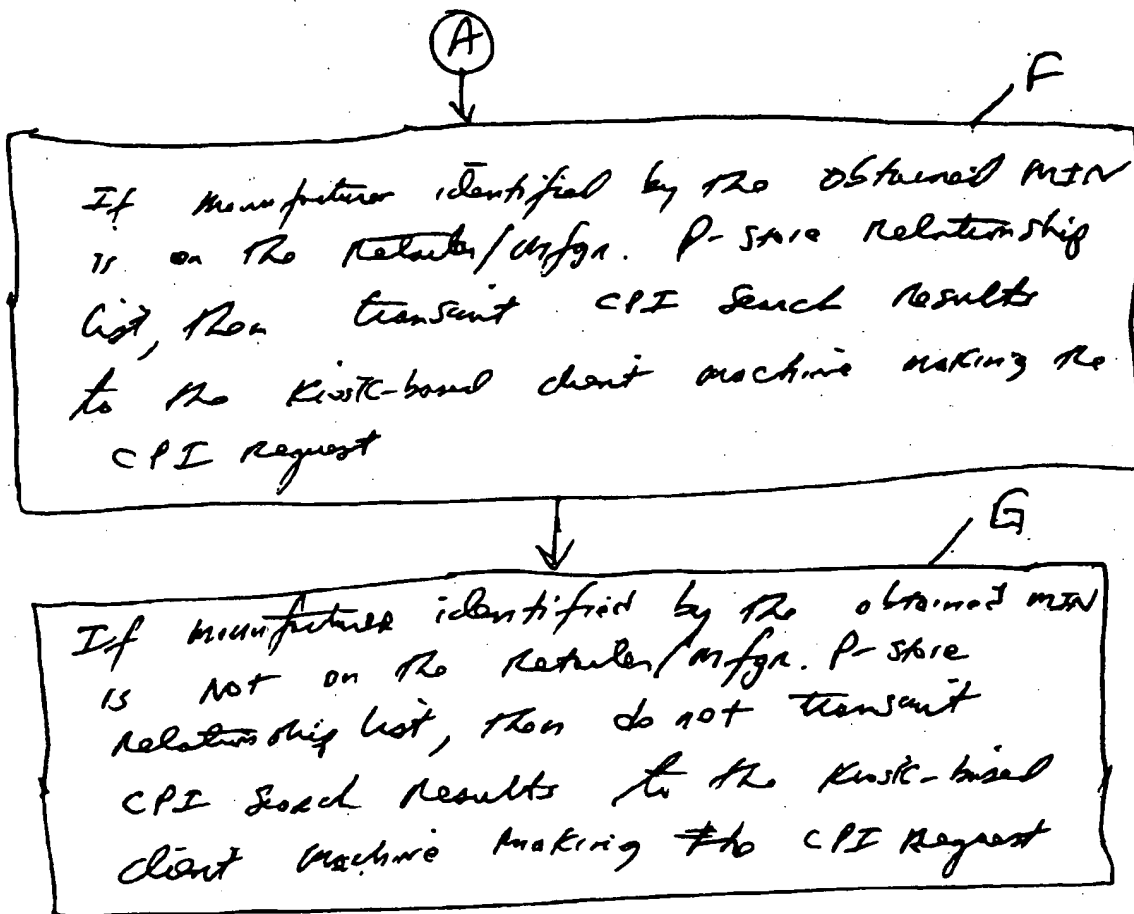 A
F
If manufacturer identified by the obtained MIN
is on the Retailer/Mfgr. P-Store Relationship
list, then transmit CPI Search Results
to the Kiosk-based client machine making the
CPI Request
G
If manufacturer identified by the obtained MIN
is Not on the Retailer/Mfgr. P-Store
Relationship list, then do not transmit
CPI Search Results to the Kiosk-based
client machine making the CPI Request